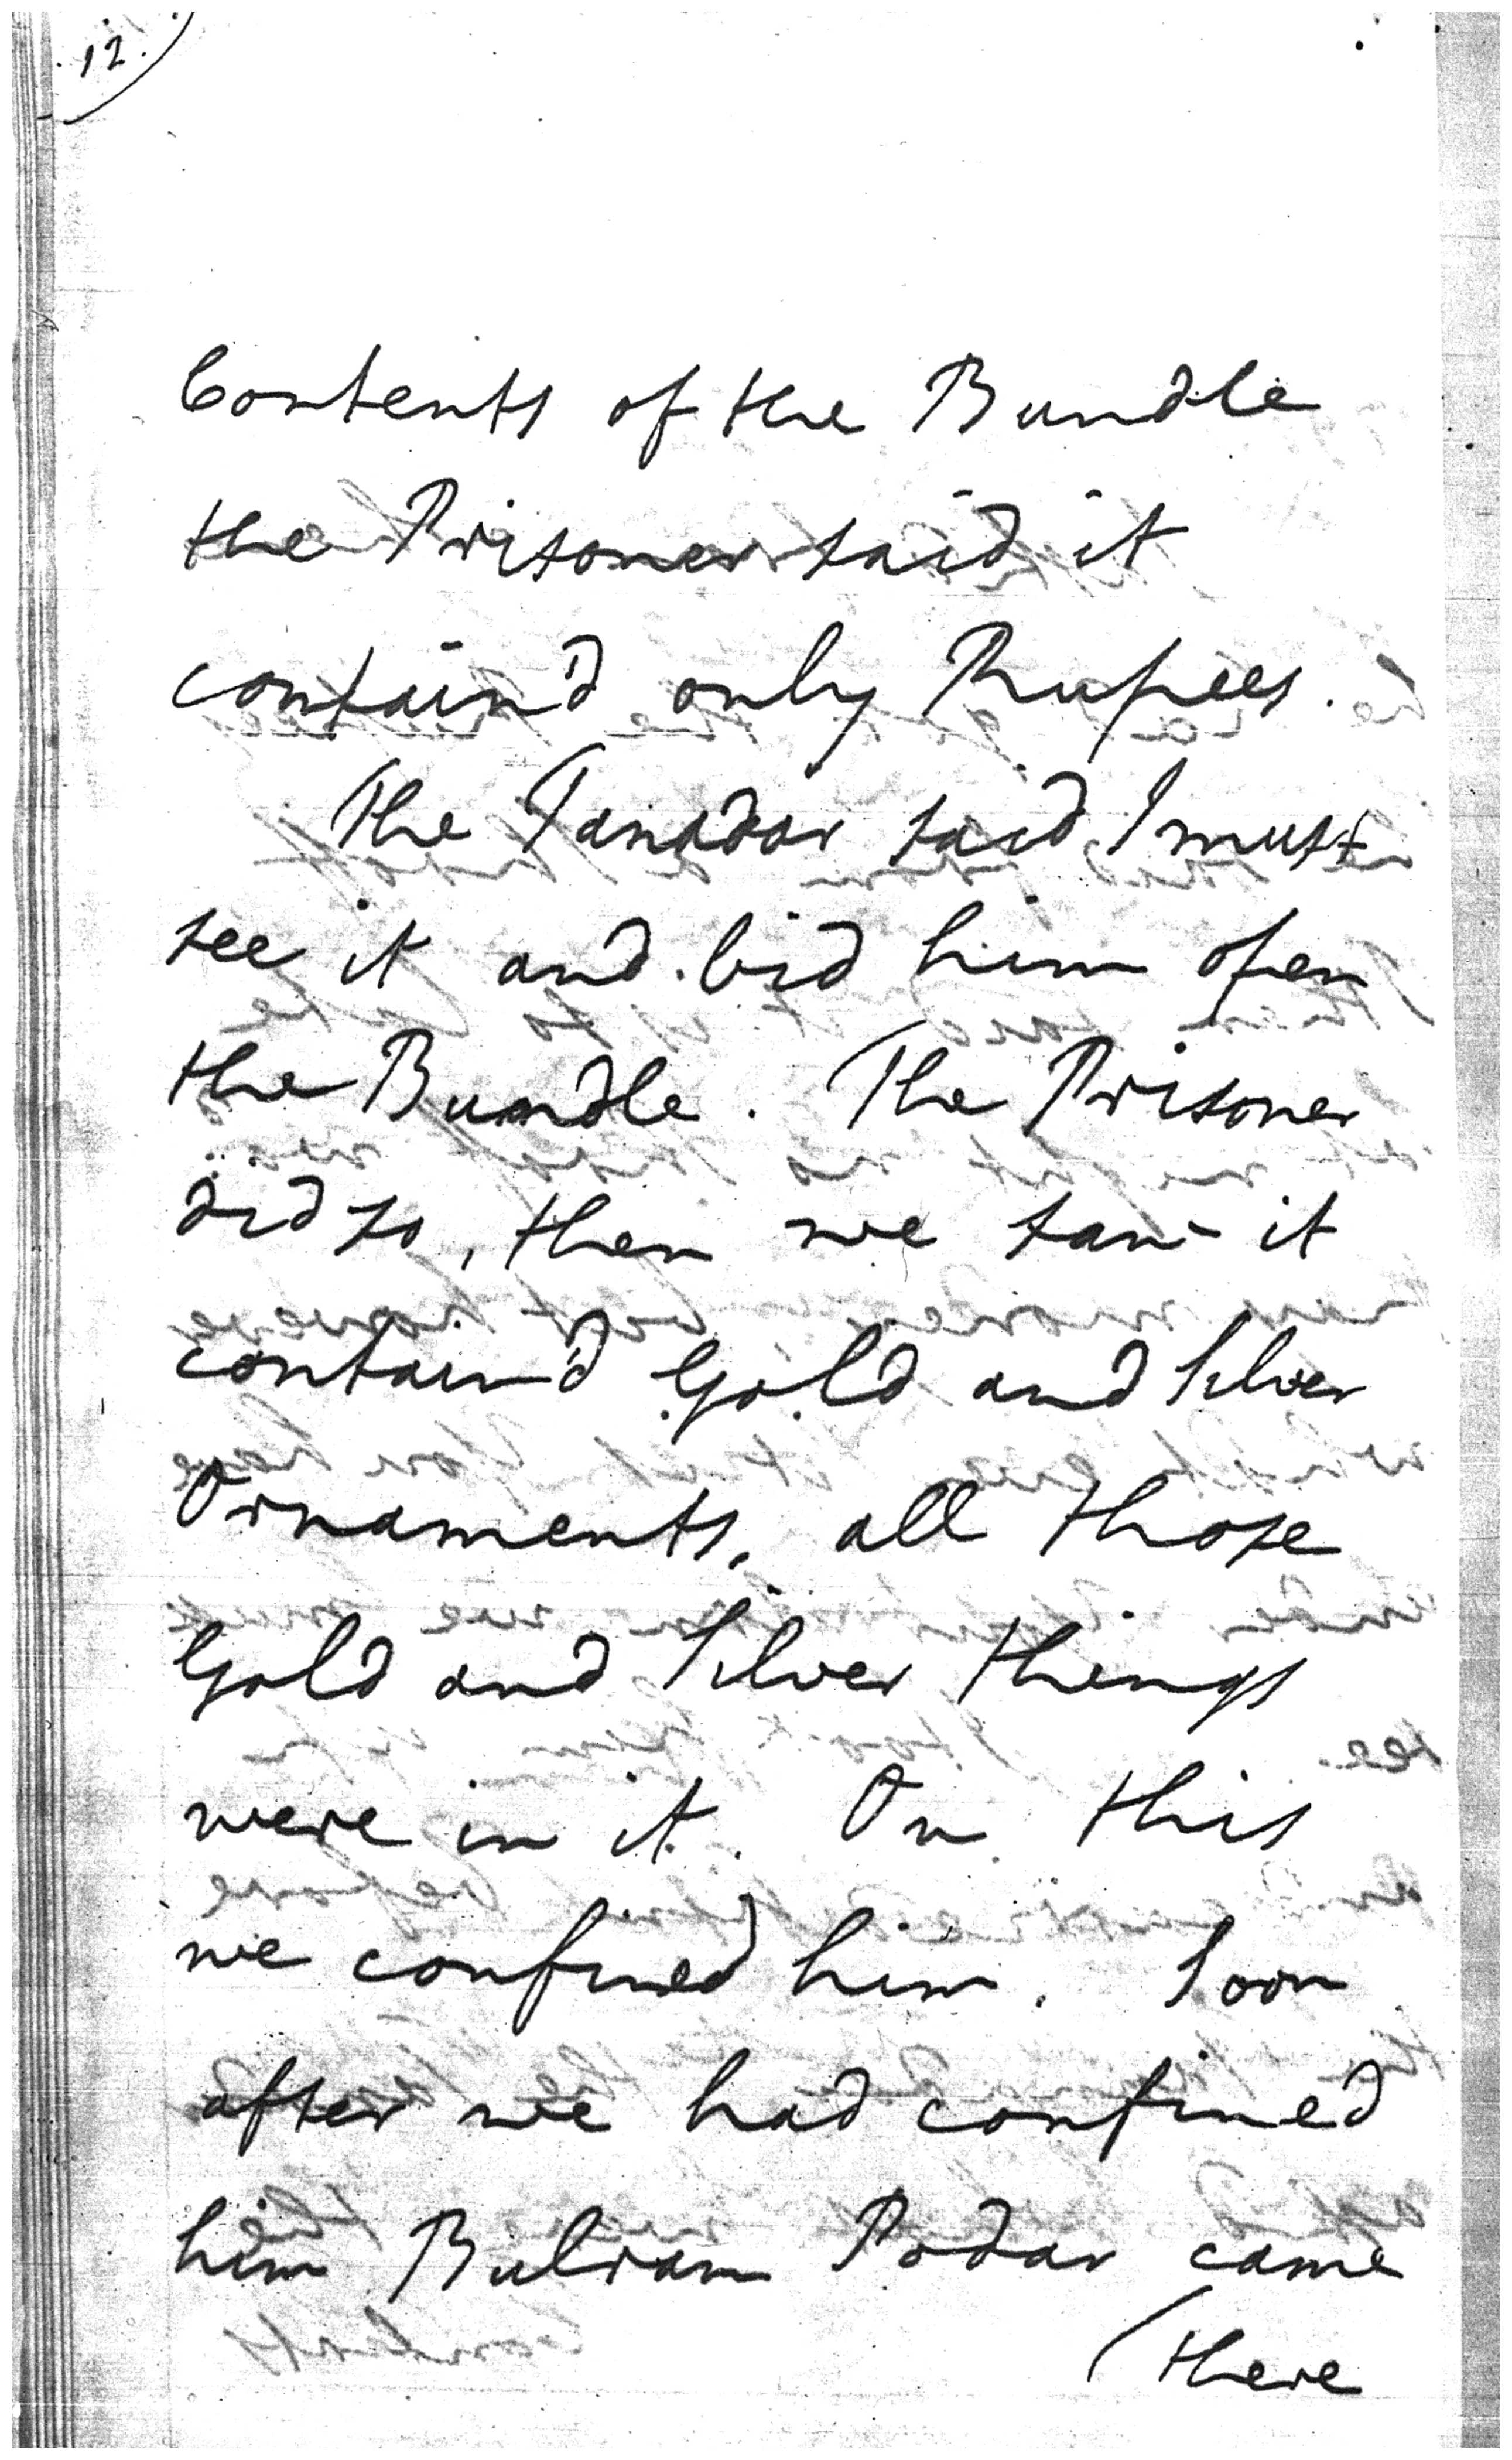 12.
Contents of the Bundle
the Prisoner said it
contain'd only Rupees.
The Tanadar said I must
see it and bid him open
the Bundle. The Prisoner
did so, then we saw it
contain'd Gold and Silver
Ornaments, all those
Gold and Silver things
were in it. On this
we confined him. Soon
after we had confined
him Bulram Podar came
there